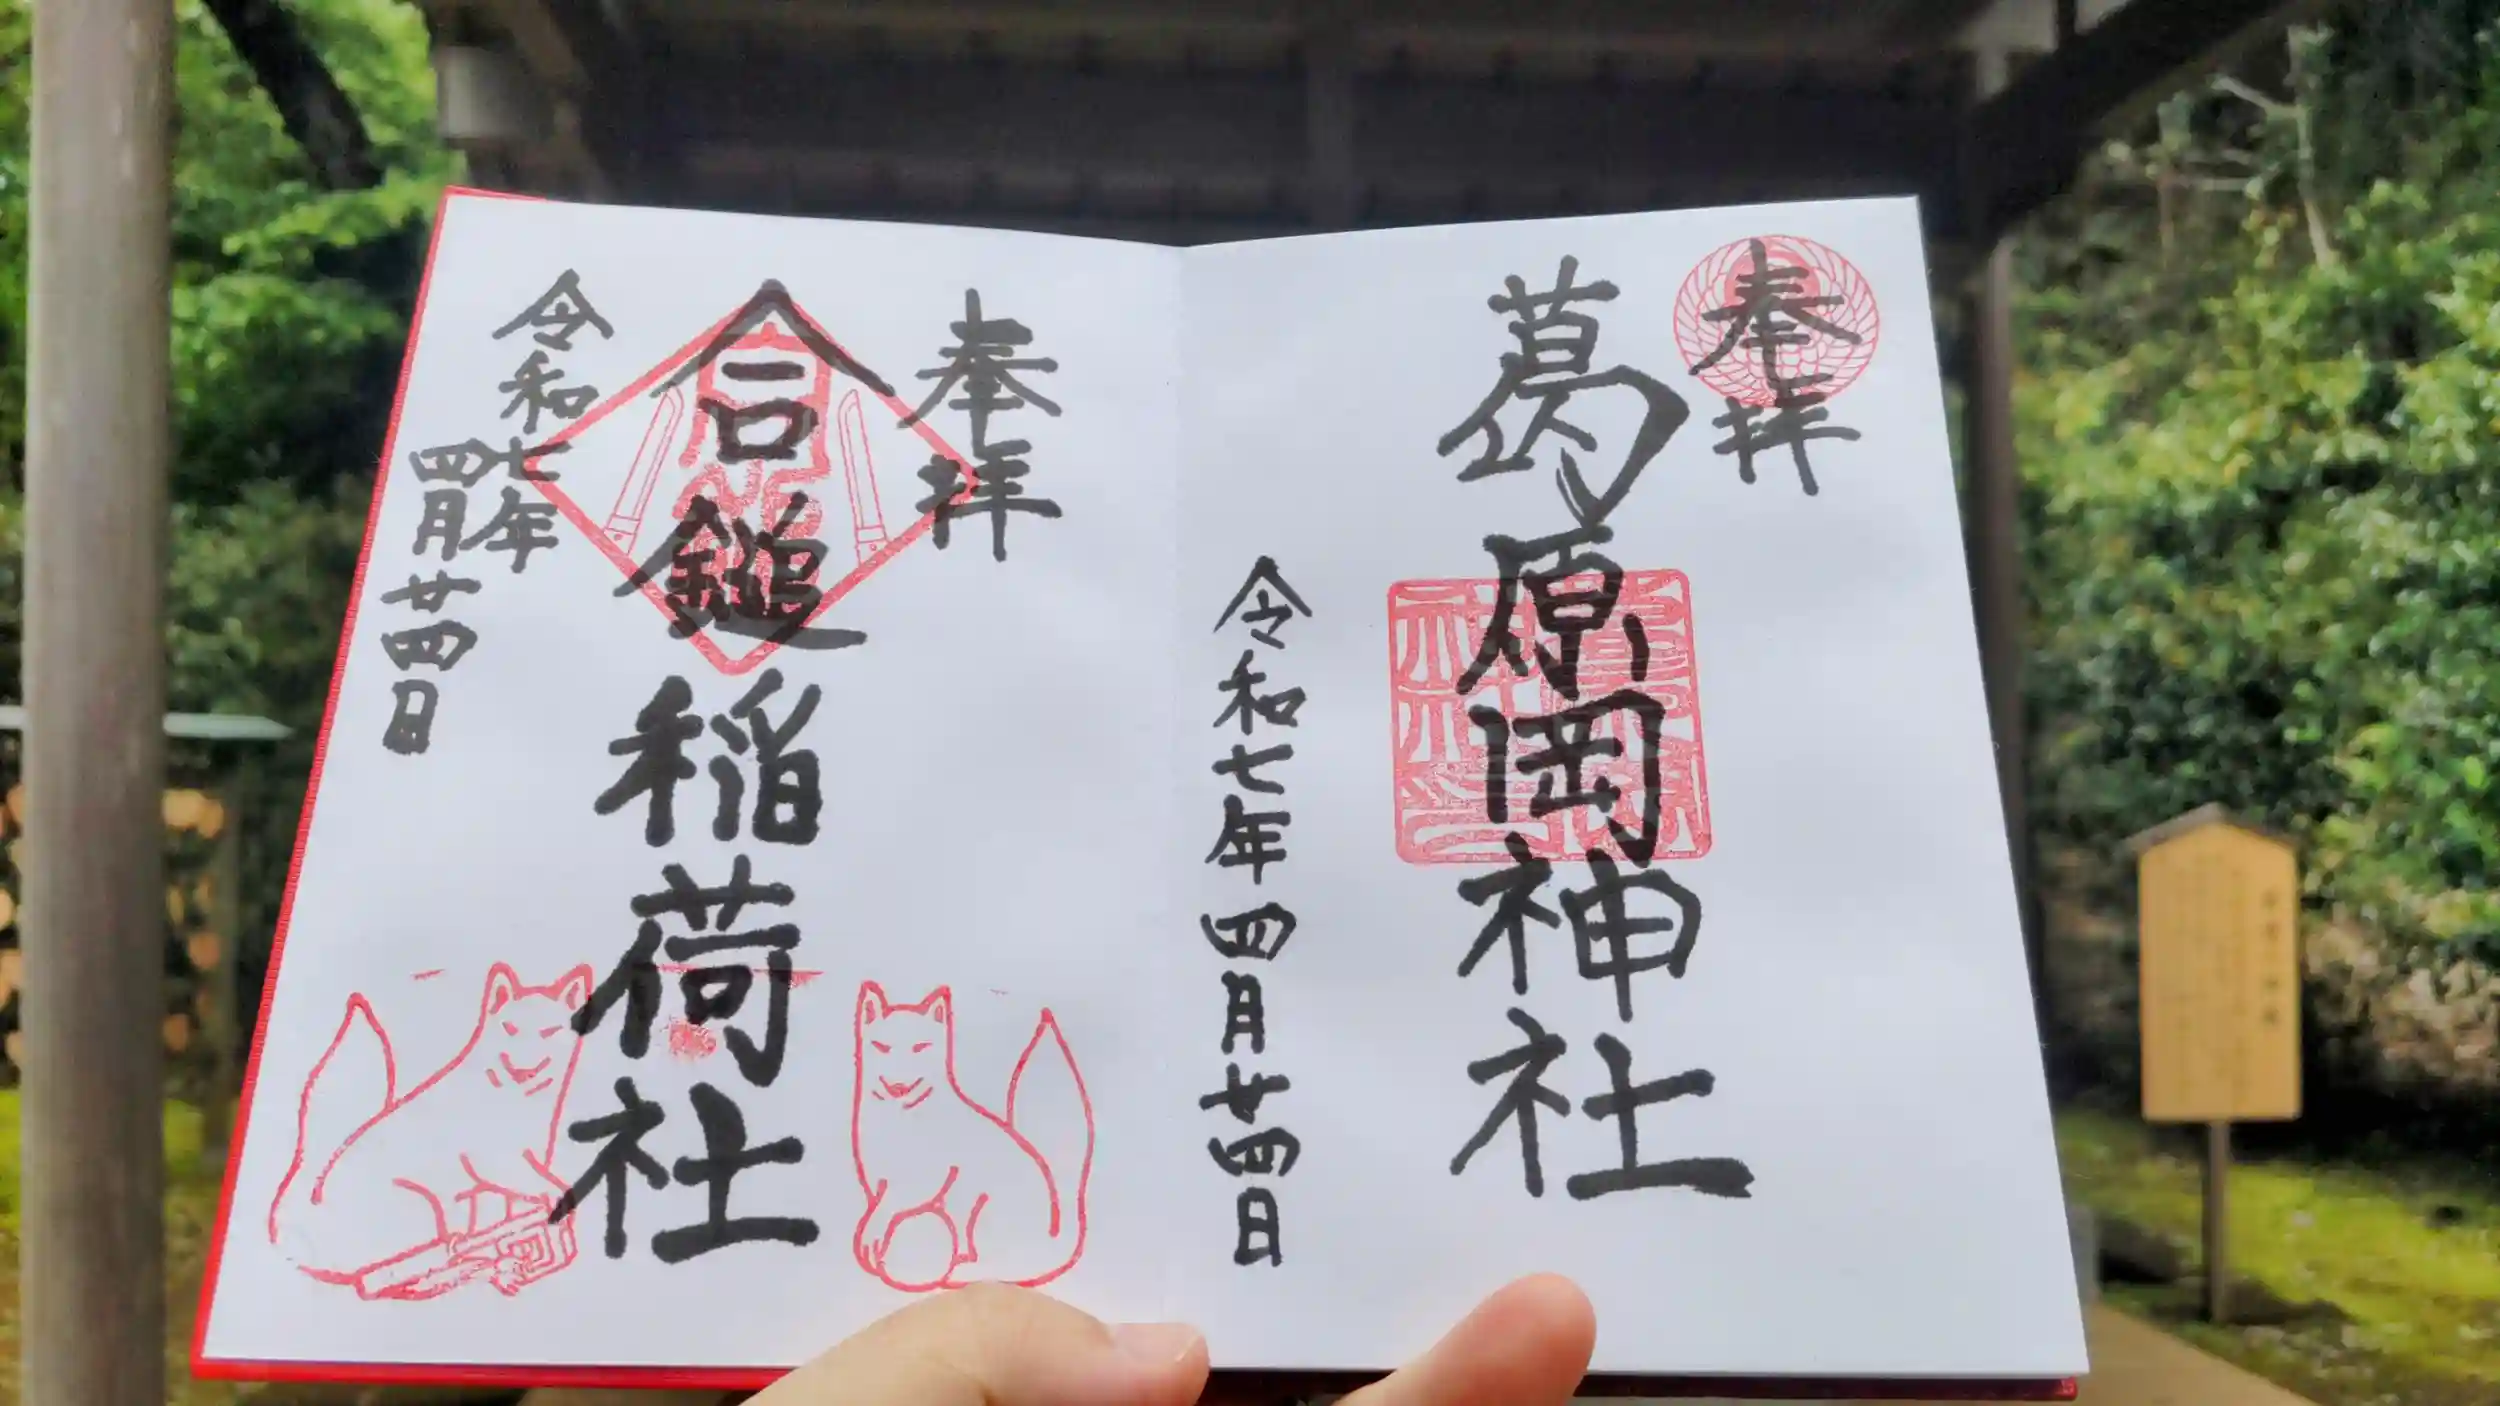 奉拝
葛原岡神社
令和七年四月廿四日
奉拝
合鎚稲荷社
令和七年
四月廿四日